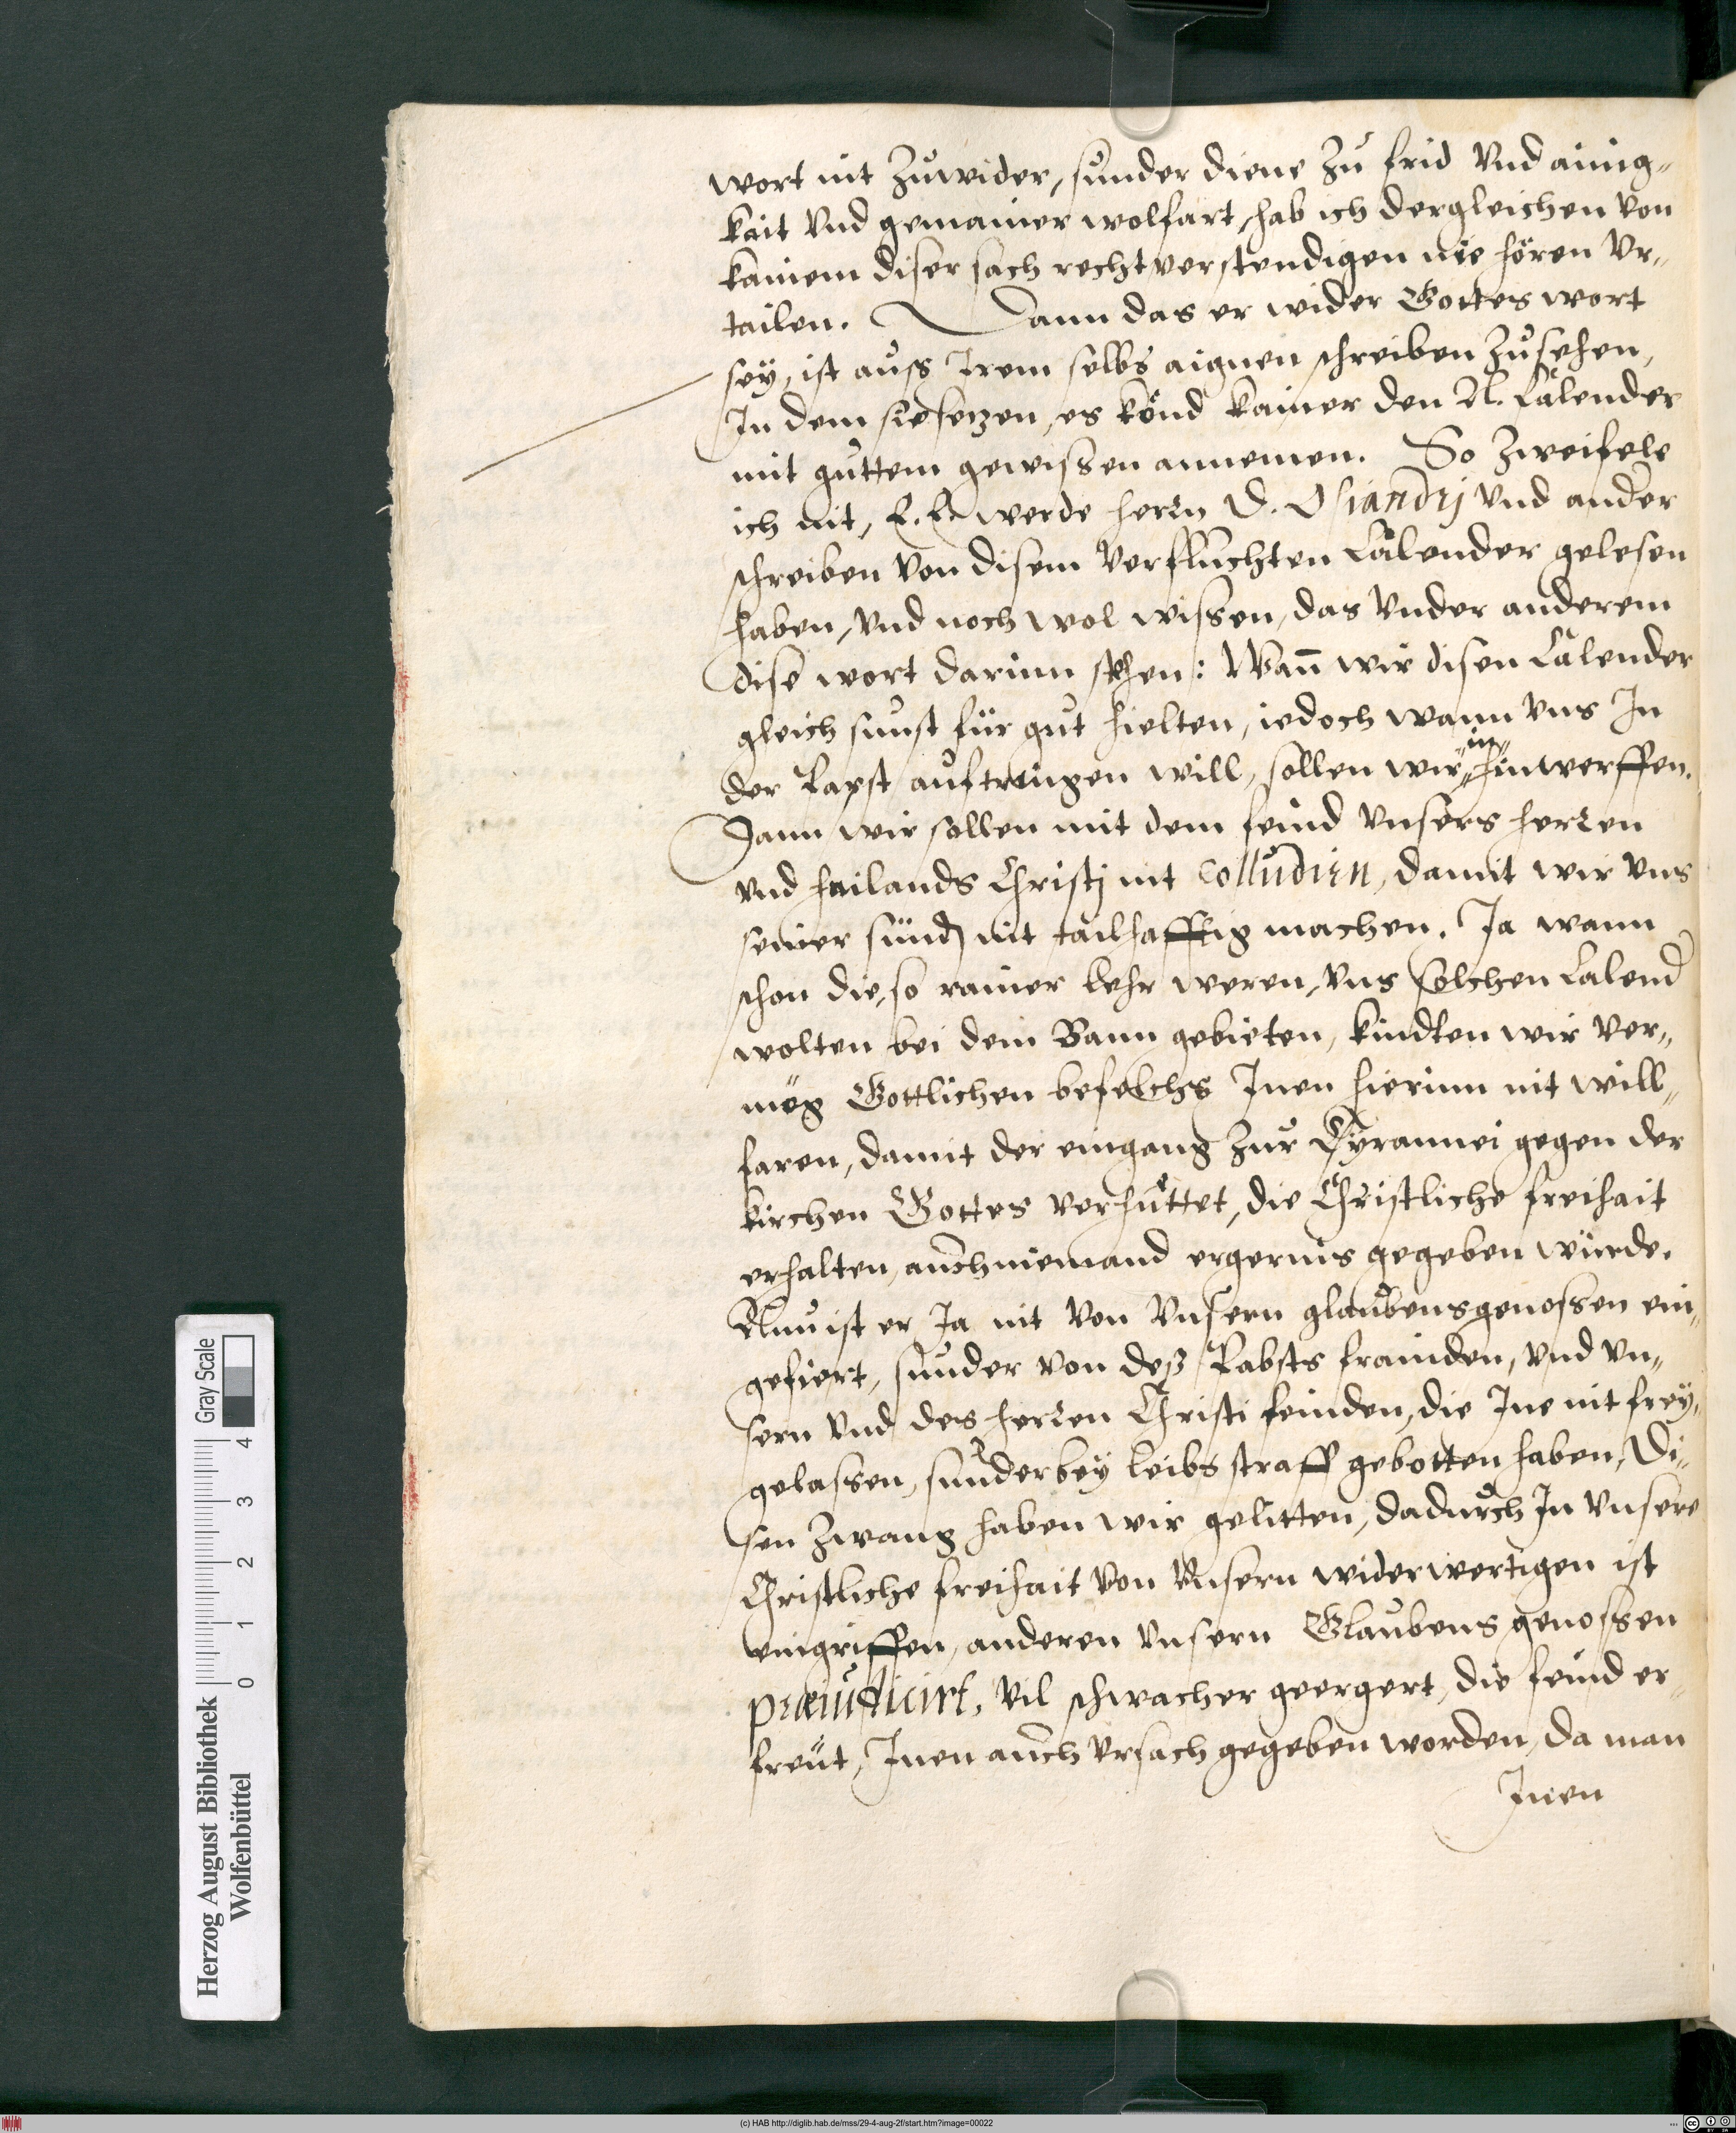 wort nit Zuwider, sunder diene zu frid Vnd ainig„
kait Vnd gemainer wolfart, hab ich dergleichen von
kainem diser sach recht verstendigen nie hören Vr„
tailen. Dann das er wider Gottes wort
seÿ, ist auß Irem selbs aignen schreiben Zusehen,
In dem sie setzen, es könd kainer den N. Calender
mit guttem gewissen annemen. So Zweifele
ich nit, E. E. werde herrn D. Osiandrj Vnd ander
schreiben Von disem Verfluchten Calender gelesen
haben, Vnd noch wol wissen, das Vnder anderem
dise wort darinn stehen: Wan̄ wir disen Calender
gleich sunst für gut hielten, iedoch wann Vns In
der Bapst auftringen will, sollen wir „in„ hinwerffen.
Dann wir sollen mit dem feind Vnsers herren
Vnd hailands Christj nit colludirn, damit wir Vns
seiner sünd nit tailhafftig machen. Ja wann
schon die, so rainer Lehr weren, Vns solchen Calend
wolten bei dem Bann gebieten, kindten wir Ver„
mög Gottlichen befelchs Inen hierinn nit will„
faren, damit der eingang zur Tÿrannei gegen der
kirchen Gottes verhüttet, die Christliche freihait
erhalten, auch niemand ergernis gegeben würde.
Nun ist er Ja nit Von Vnsern glaubensgenossen ein„
gefiert, sunder Von deß Babsts frainden, Vnd Vn„
sern Vnd des herren Christi feinden, die Ine nit freÿ„
gelassen, sunder beÿ leibs straff gebotten haben, Di„
sen Zwang haben wir gelitten, dadurch In Vnsere
Christliche freihait Von Vnsern widerwertigen ist
eingriffen, anderen Vnsern Glaubens genossen
præiudicirt, Vil schwacher geergert, die feind er„
freut, Inen auch Vrsach gegeben worden, da man
Inen
Herzog August Bibliothek
Wolfenbüttel
Gray Scale
0 1 2 3 4
(c) HAB http://diglib.hab.de/mss/29-4-aug-2f/start.htm?image=00022